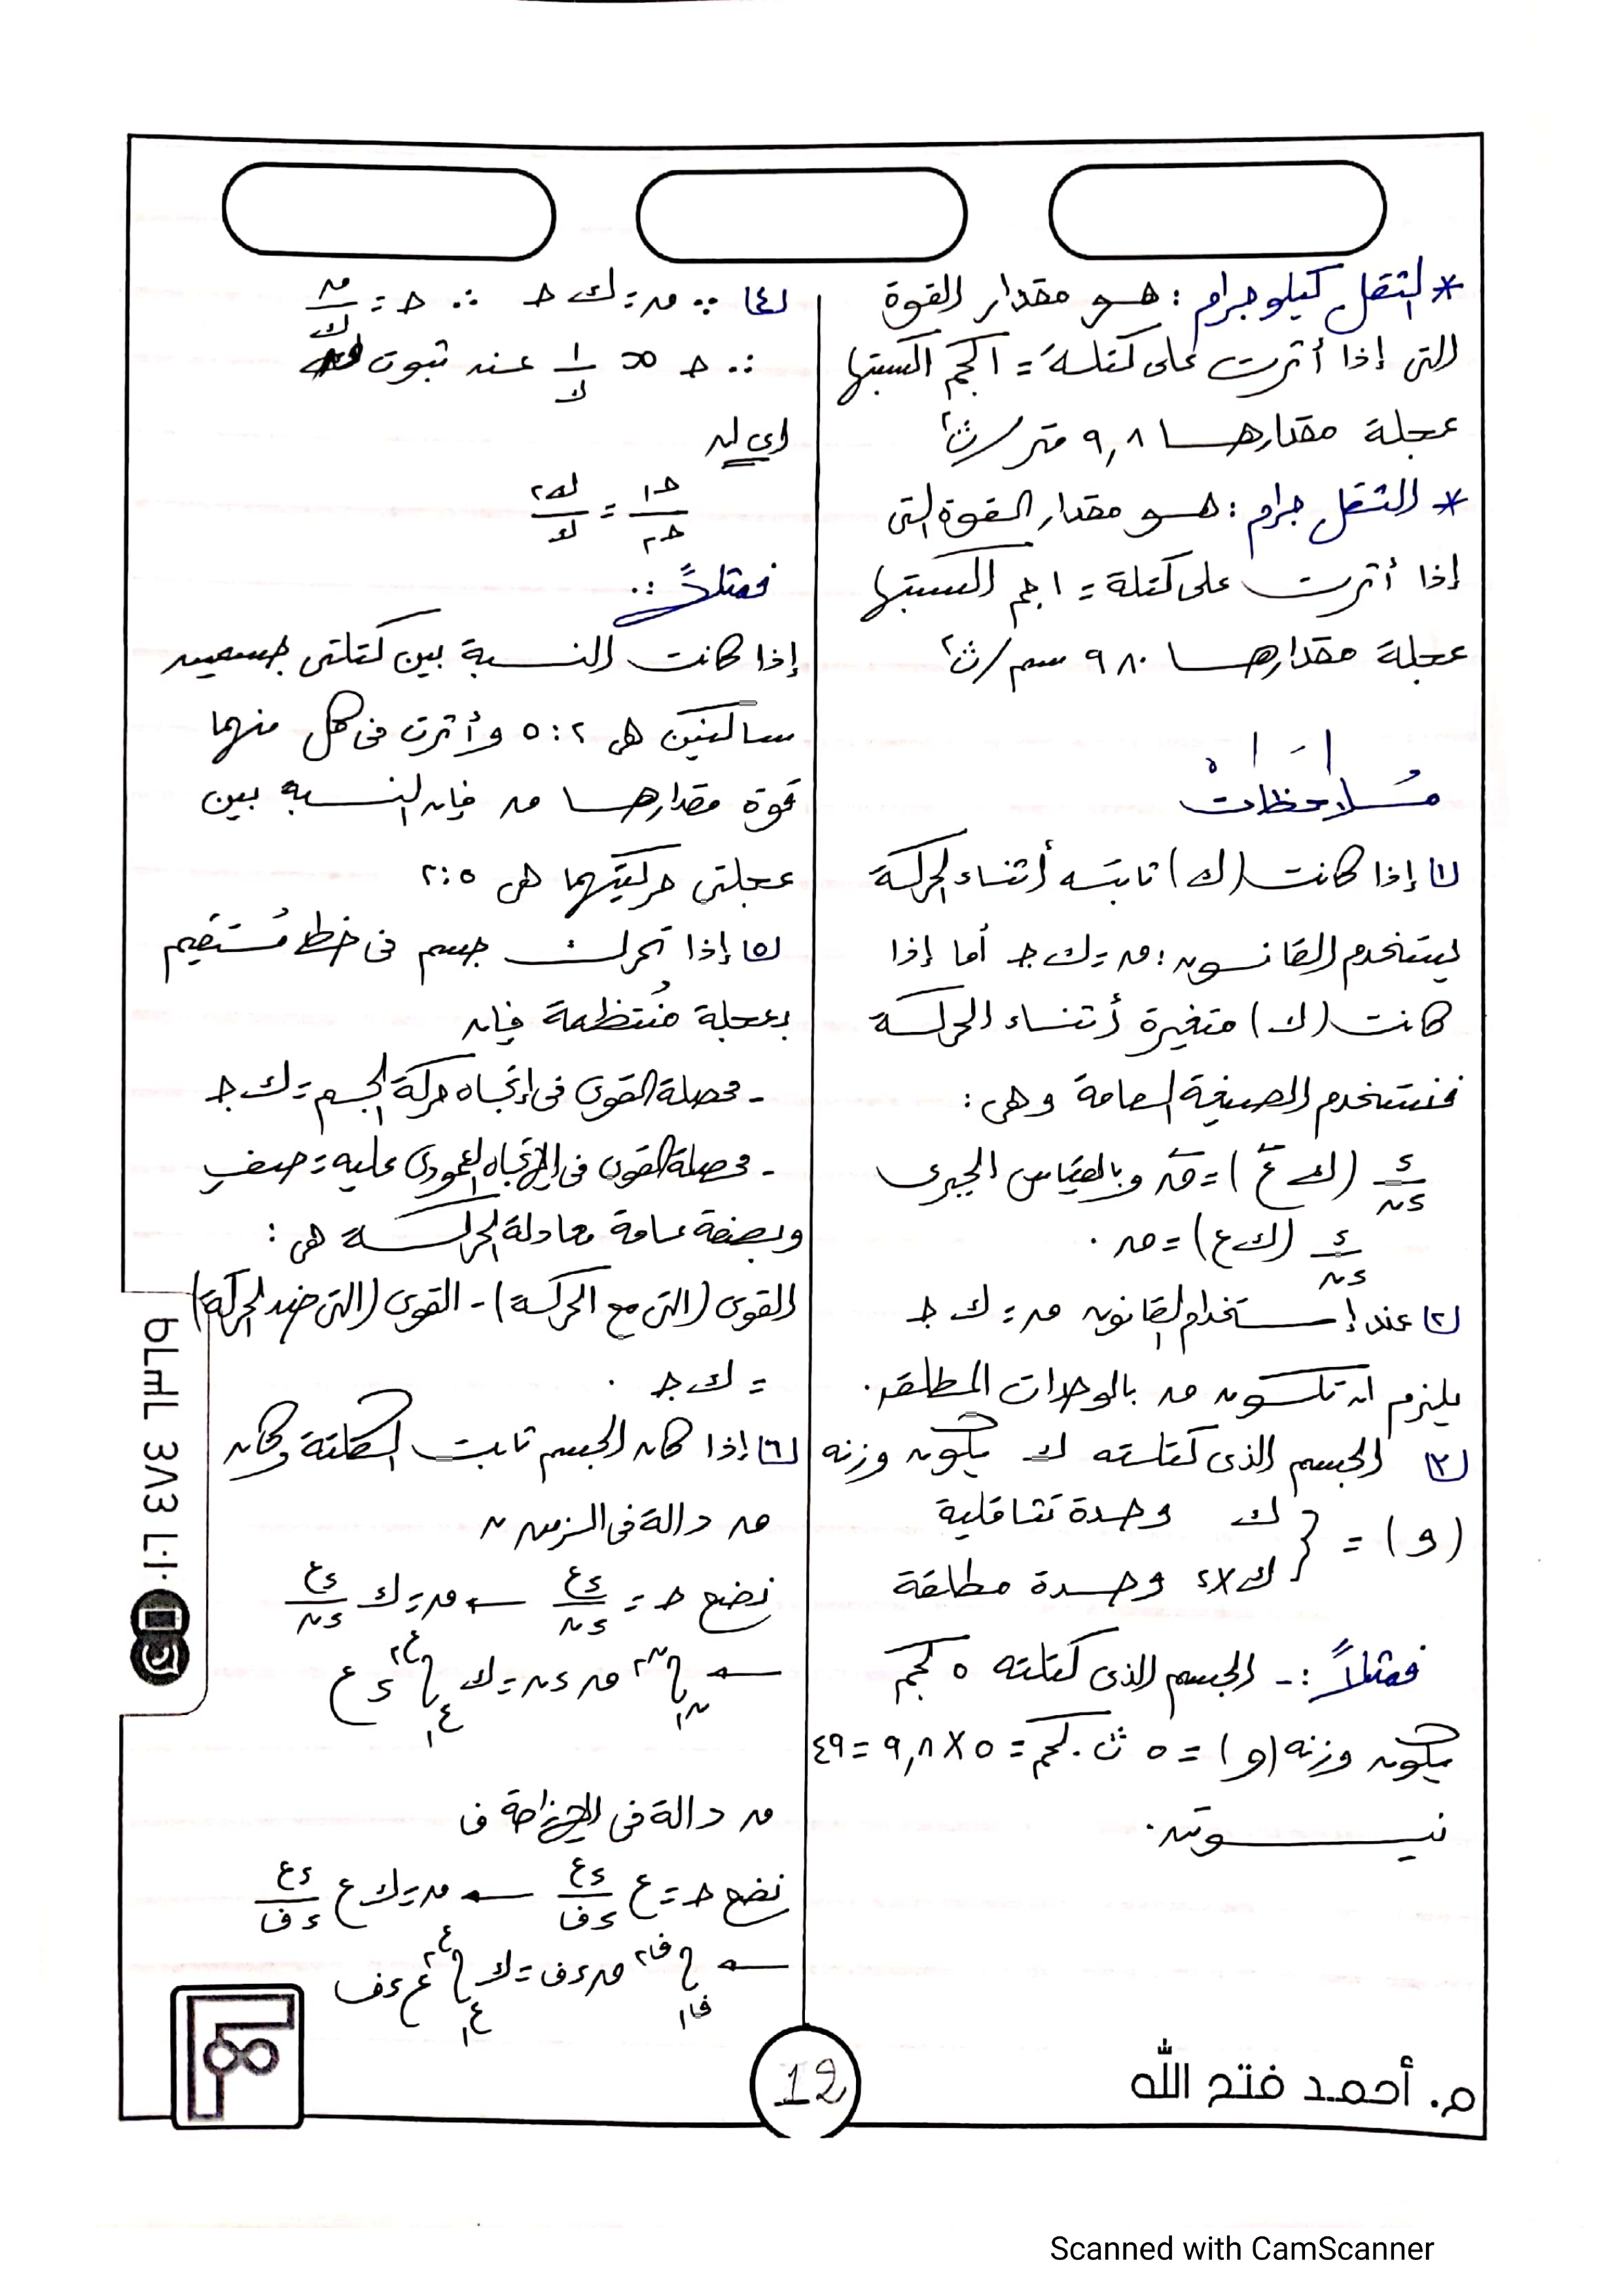 * الثقل كيلوجرام : هو مقدار القوة
التى إذا أثرت على كتلة = ١كجم اكسبتها
عجلة مقدارها ٩,٨ متر/ث٢
* الثقل جرام : هو مقدار القوة التى
إذا أثرت على كتلة = ١جم اكسبتها
عجلة مقدارها ٩٨٠ سم/ث٢
مُلاحظات
١) إذا كانت (ك) ثابته أثناء الحركة
يستخدم القانون : ق = ك جـ أما إذا
كانت (ك) متغيرة أثناء الحركة
فنستخدم الصيغة العامة وهى :
ء/ءن (ك ع) = ق وبالقياس الجبرى
ء/ءن (ك ع) = ق .
٢) عند إستخدام القانون ق = ك جـ
يلزم ان تكون ق بالوحدات المطلقه .
٣) الجسم الذى كتلته ك يكون وزنه
(و) = { ك وحدة تثاقلية
ك × ء وحدة مطلقة
فمثلاً :- الجسم الذى كتلته ٥ كجم
يكون وزنه (و) = ٥ ث.كجم = ٥ × ٩,٨ = ٤٩
نيوتن .
٤) ∵ ق = ك جـ ∴ جـ = ق/ك
∴ جـ ∝ ١/ك عند ثبوت
اى ان
جـ١/جـ٢ = ك٢/ك١
فمثلاً :.
إذا كانت النسبة بين كتلتى جسمين
ساكنين هى ٢ : ٥ وأثرت فى كل منهما
قوة مقدارها ق فإن النسبة بين
عجلتى حركتيهما هى ٥ : ٢
٥) إذا تحرك جسم فى خط مُستقيم
بعجلة مُنتظمة فإن
- محصلة القوى فى إتجاه حركة الجسم = ك جـ
- محصلة القوى فى الإتجاه العمودى عليه = صفر
وبصفة عامة معادلة الحركة هى :
القوى (التى مع الحركة) - القوى (التى ضد الحركة)
= ك جـ .
٦) إذا كان الجسم ثابت الكتلة وكان
ق دالة فى الزمن ن
نضع جـ = ءع/ءن ← ق = ك ءع/ءن
← ∫ن١ ن٢ ق ءن = ك ∫ع١ ع٢ ء ع
ق دالة فى الإزاحة ف
نضع جـ = ع ءع/ءف ← ق = ك ع ءع/ءف
← ∫ف١ ف٢ ق ءف = ك ∫ع١ ع٢ ع ءف
م. أحمد فتح الله
12
Scanned with CamScanner